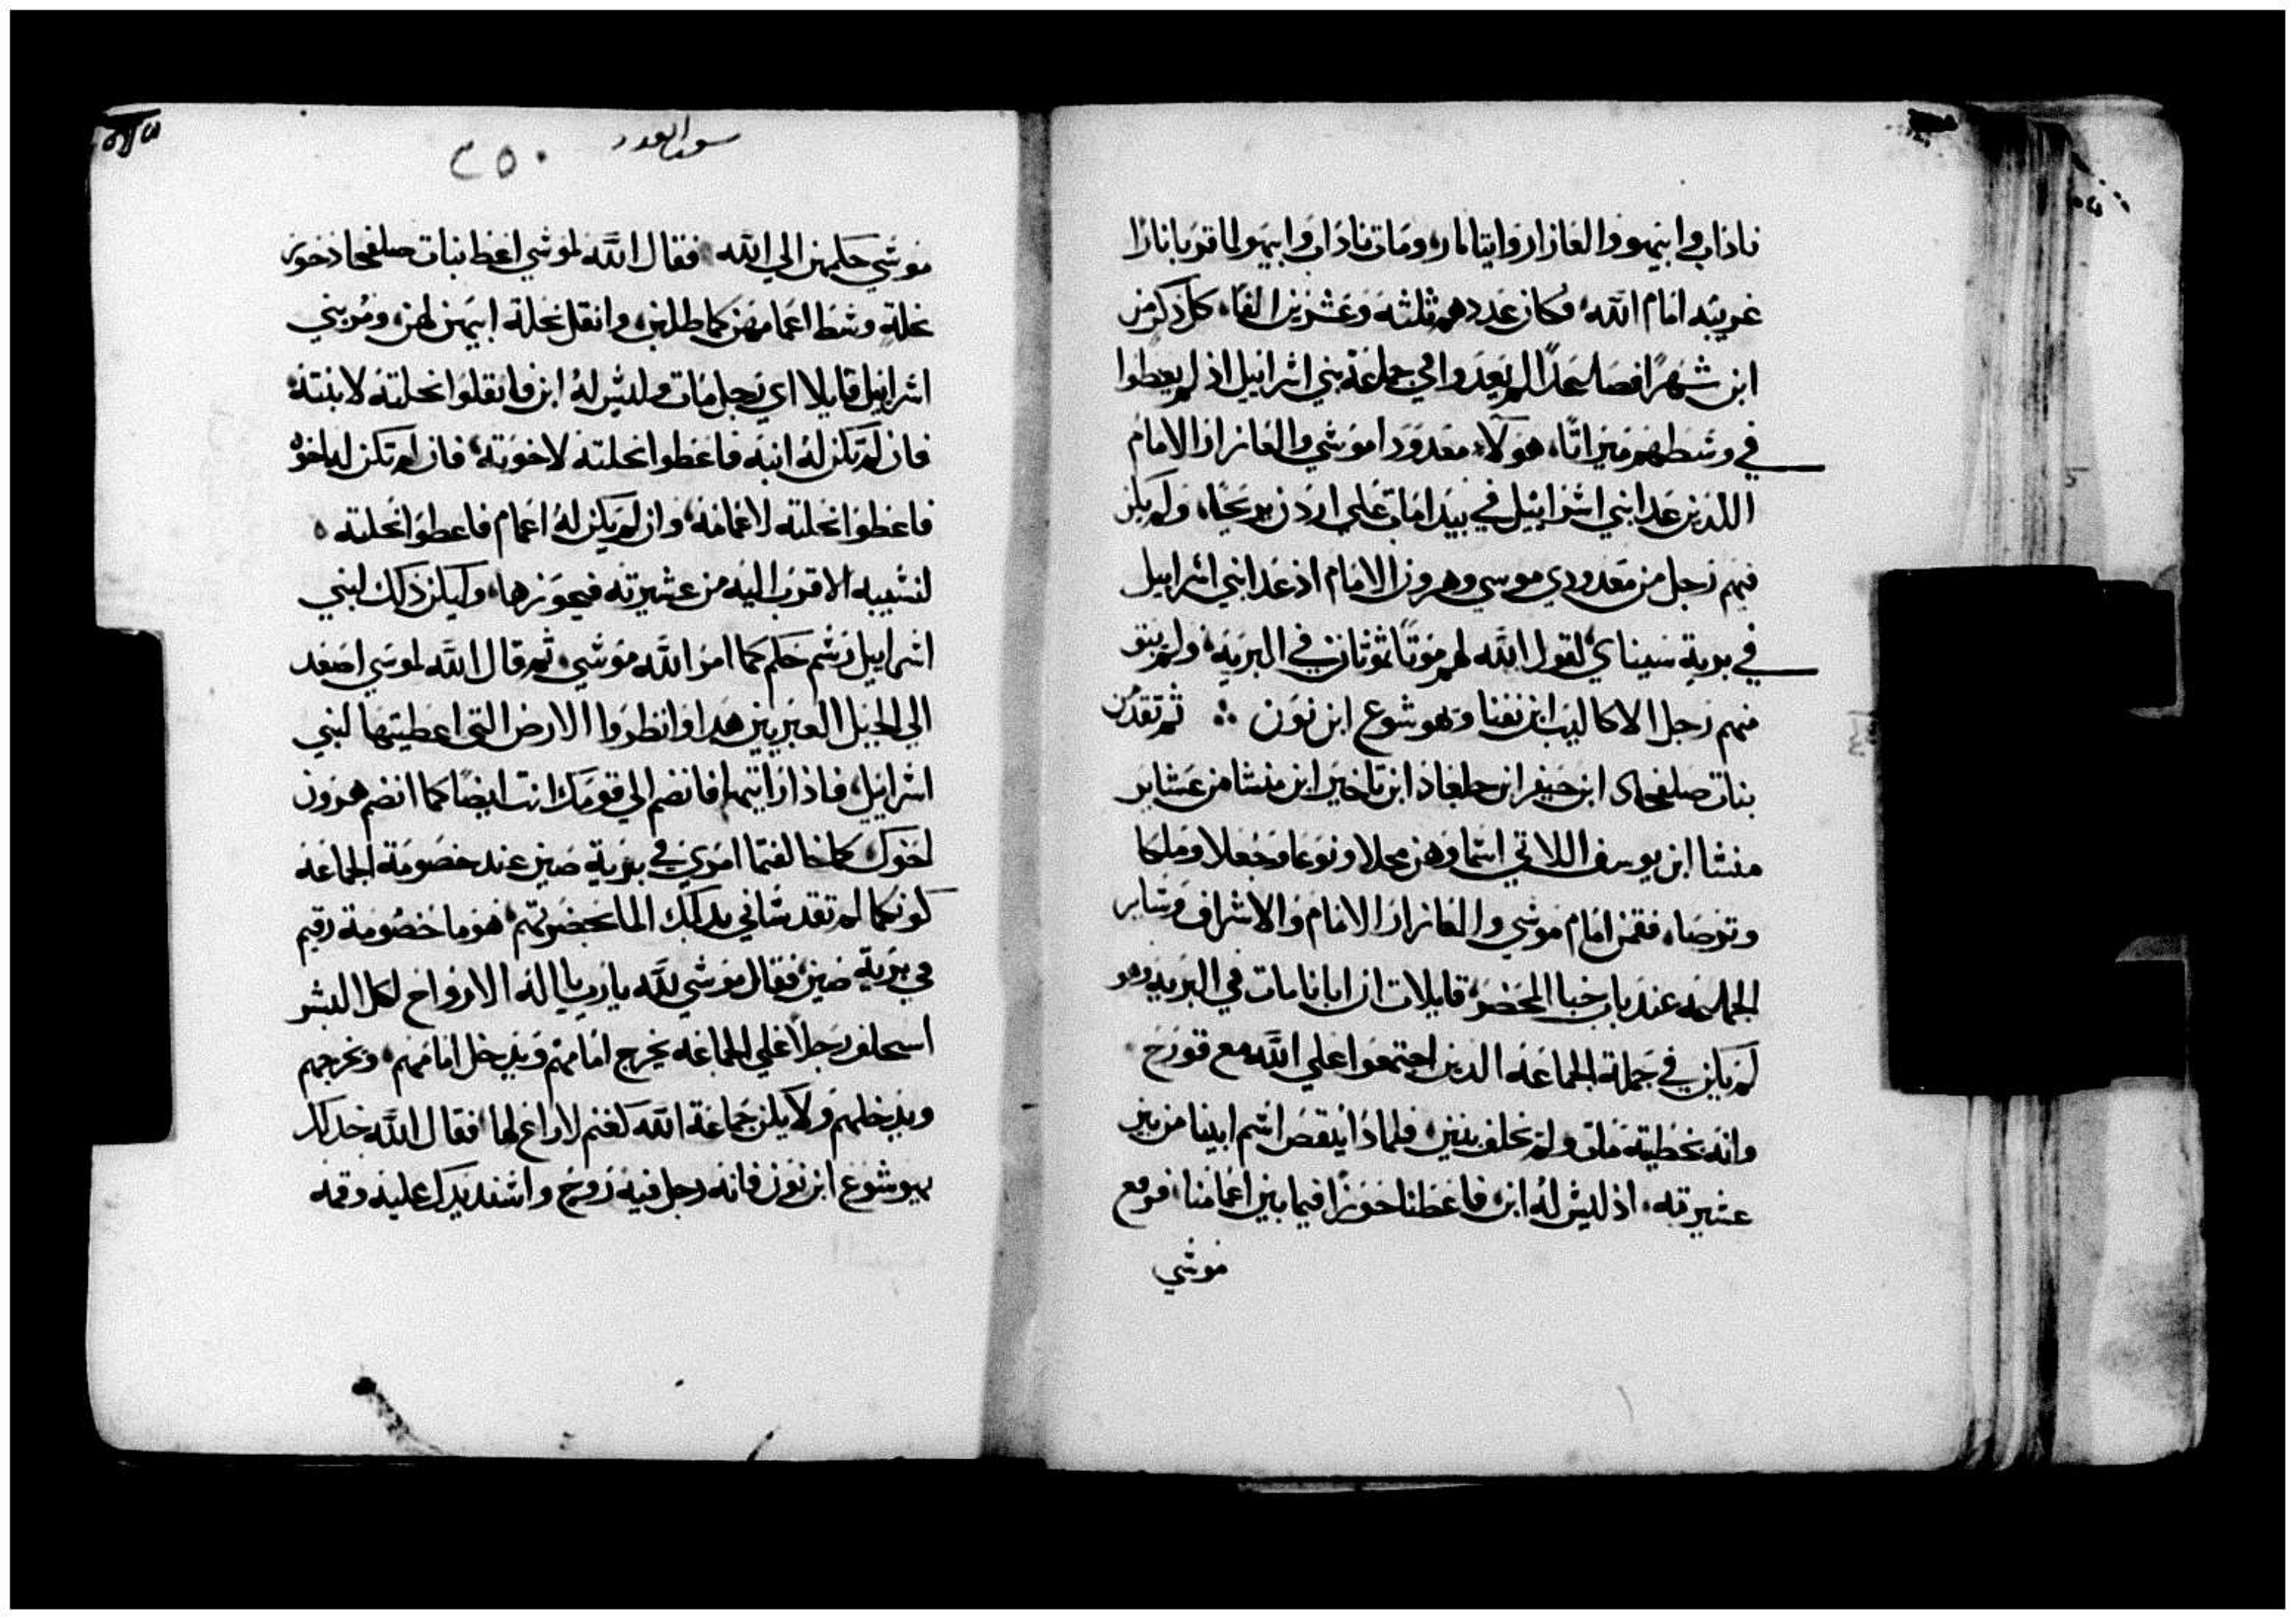 ناداب وابيهو والعازار وايتامار، ومات ناداب وابيهو لما قربا نارًا
غريبه امام الله، فكان عددهم ثلثة وعشرين الفًا، كل ذكر من
ابن شهرًا فصاعدًا لم يعدوا في جملة بني اسرائيل اذ لم يعطوا
في وسطهم ميراثًا، هولاء معدودا موسي والعازار الامام
اللذين عدا بني اسرائيل في بيدا ماب علي اردن يريحا، ولم يكن
فيهم رجل من معدودي موسي وهرون الامام اذ عدا بني اسراييل
في برية سيناي لقول الله لهم موتًا تموتان في البرية، ولم يبق
منهم رجل الا كاليب ابن يفنا وهوشوع ابن نون ⁘ ثم تقدمن
بنات صلفحاد ابن حيفر ابن جلعاد ابن ماخير ابن منشا من عشاير
منشا ابن يوسف اللاتي اسماوهن محلا ونوعا وحجلا وملكا
وترصا، فقمن امام موسي والعازار الامام والاشراف وساير
الجماعه عند باب خبا المحضر قايلات ان ابانا مات في البريه وهو
لم يكن في جملة الجماعه الذين اجتمعوا علي الله مع قورح
وانه بخطيته مات ولم يخلف بنين، فلماذا ينقص اسم ابينا من بين
عشيرته، اذ ليس له ابن، فاعطنا حوزًا فيما بين اعمامنا، فرفع
موسي
سفر العدد
٢٥٠
موسي حكمهن الي الله فقال الله لموسي اعط بنات صلفحاد حوز
نحلة وسط اعمامهن كما طلبن، وانقل نحلة ابيهن لهن، ومر بني
اسراييل قايلا اي رجل مات وليس له ابن فانقلوا نحلته لابنته
فان لم تكن له ابنه فاعطوا نحلته لاخوته، فان لم تكن له اخوه
فاعطوا نحلته لاعمامه، وان لم يكن له اعمام فاعطوا نحلته
لنسيبه الاقرب اليه من عشيرته فيحوزها، وليكن ذلك لبني
اسراييل رسم حكم كما امر الله موسي، ثم قال الله لموسي اصعد
الي الجبل العبريين هدا وانظروا الارض التي اعطيتها لبني
اسراييل، فاذا راتيها فانضم الي قومك انت ايضًا كما انضم هرون
اخوك كما خالفتما امري في برية صين عند خصومة الجماعه
كونكما لم تقدساني بدلك الما بحضرتهم، هو ما خصومة رقيم
في برية صين، فقال موسي لله يا رب يا اله الارواح لكل البشر
استخلف رجلًا علي الجماعه يخرج امامهم ويدخل امامهم، ويخرجهم
ويدخلهم ولا يكن جماعة الله كغنم لا راع لها، فقال الله خد لك
يهوشوع ابن نون فانه رجل فيه روح واسند يدك عليه وقمه